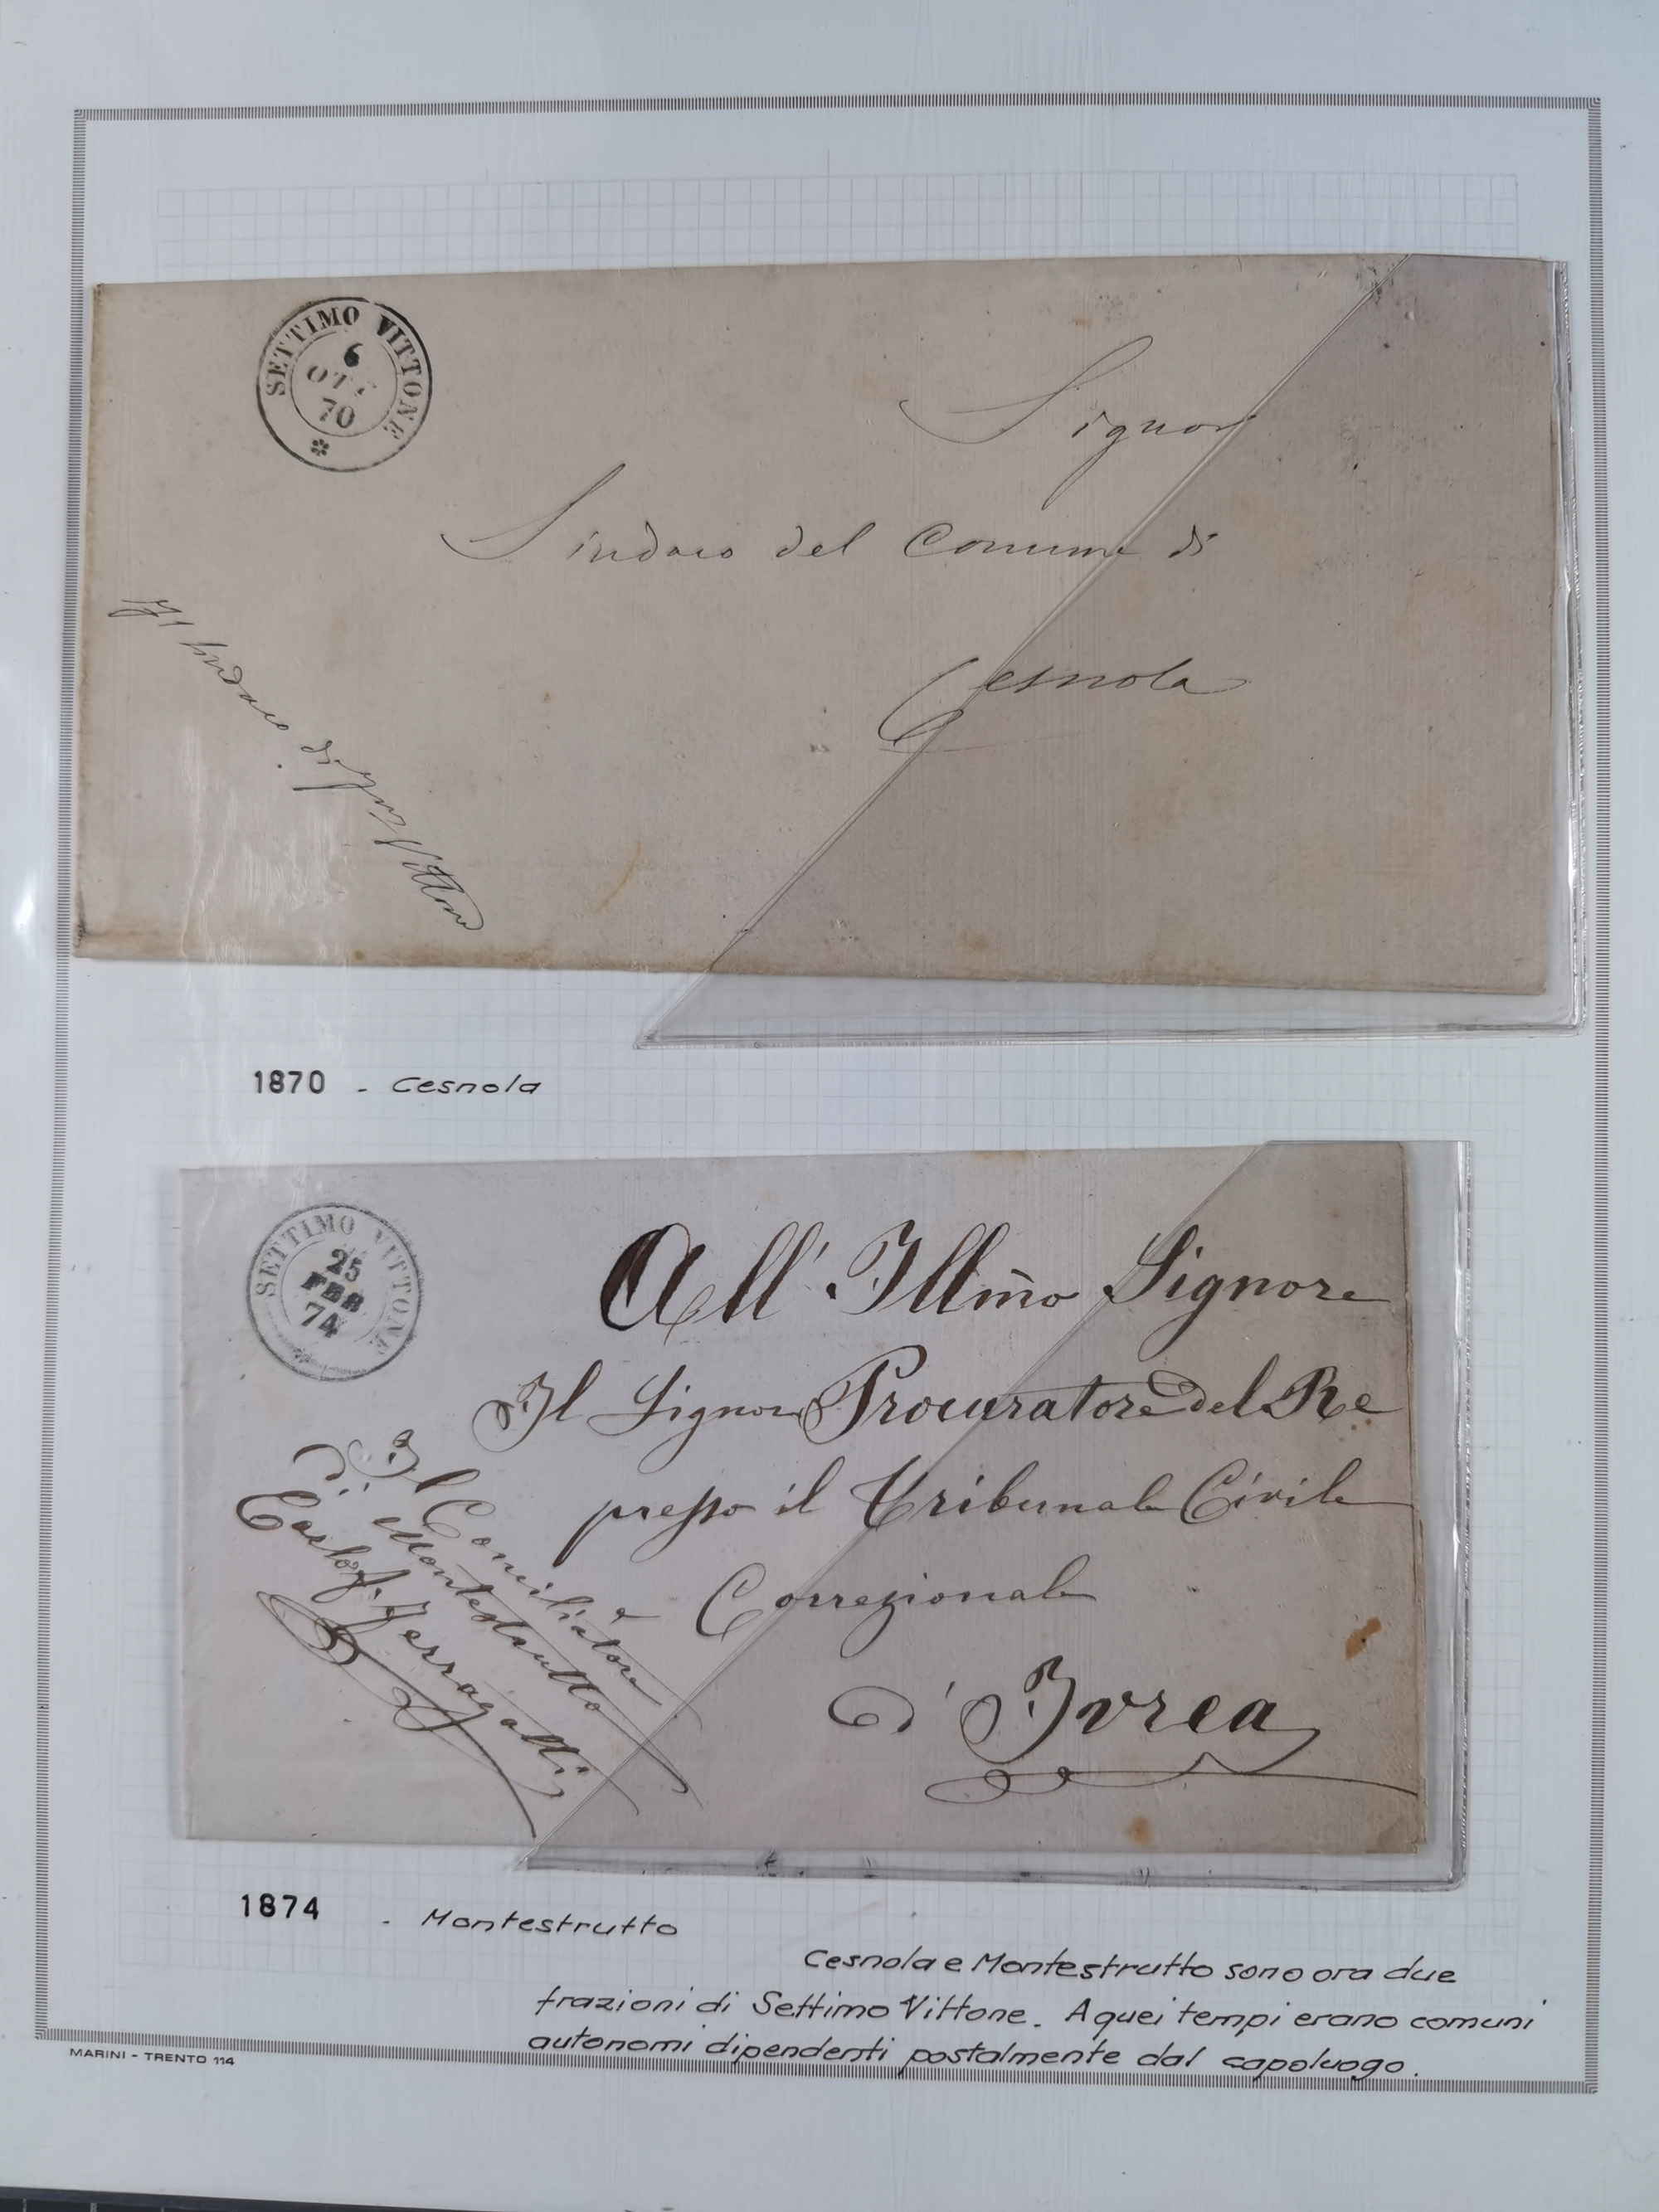 SETTIMO VITTONE
6
OTT
70
Signor
Sindaco del Comune di
Cesnola
Il Sindaco di Sett. Vittone
1870 - Cesnola
SETTIMO VITTONE
25
FEB
74
All' Illmo Signore
Il Signor Procuratore del Re
presso il Tribunale Civile
e Correzionale
d' Ivrea
Il Conciliatore
di Montestrutto
1874 - Montestrutto
Cesnola e Montestrutto sono ora due
frazioni di Settimo Vittone. A quei tempi erano comuni
autonomi dipendenti postalmente dal capoluogo.
MARINI - TRENTO 114